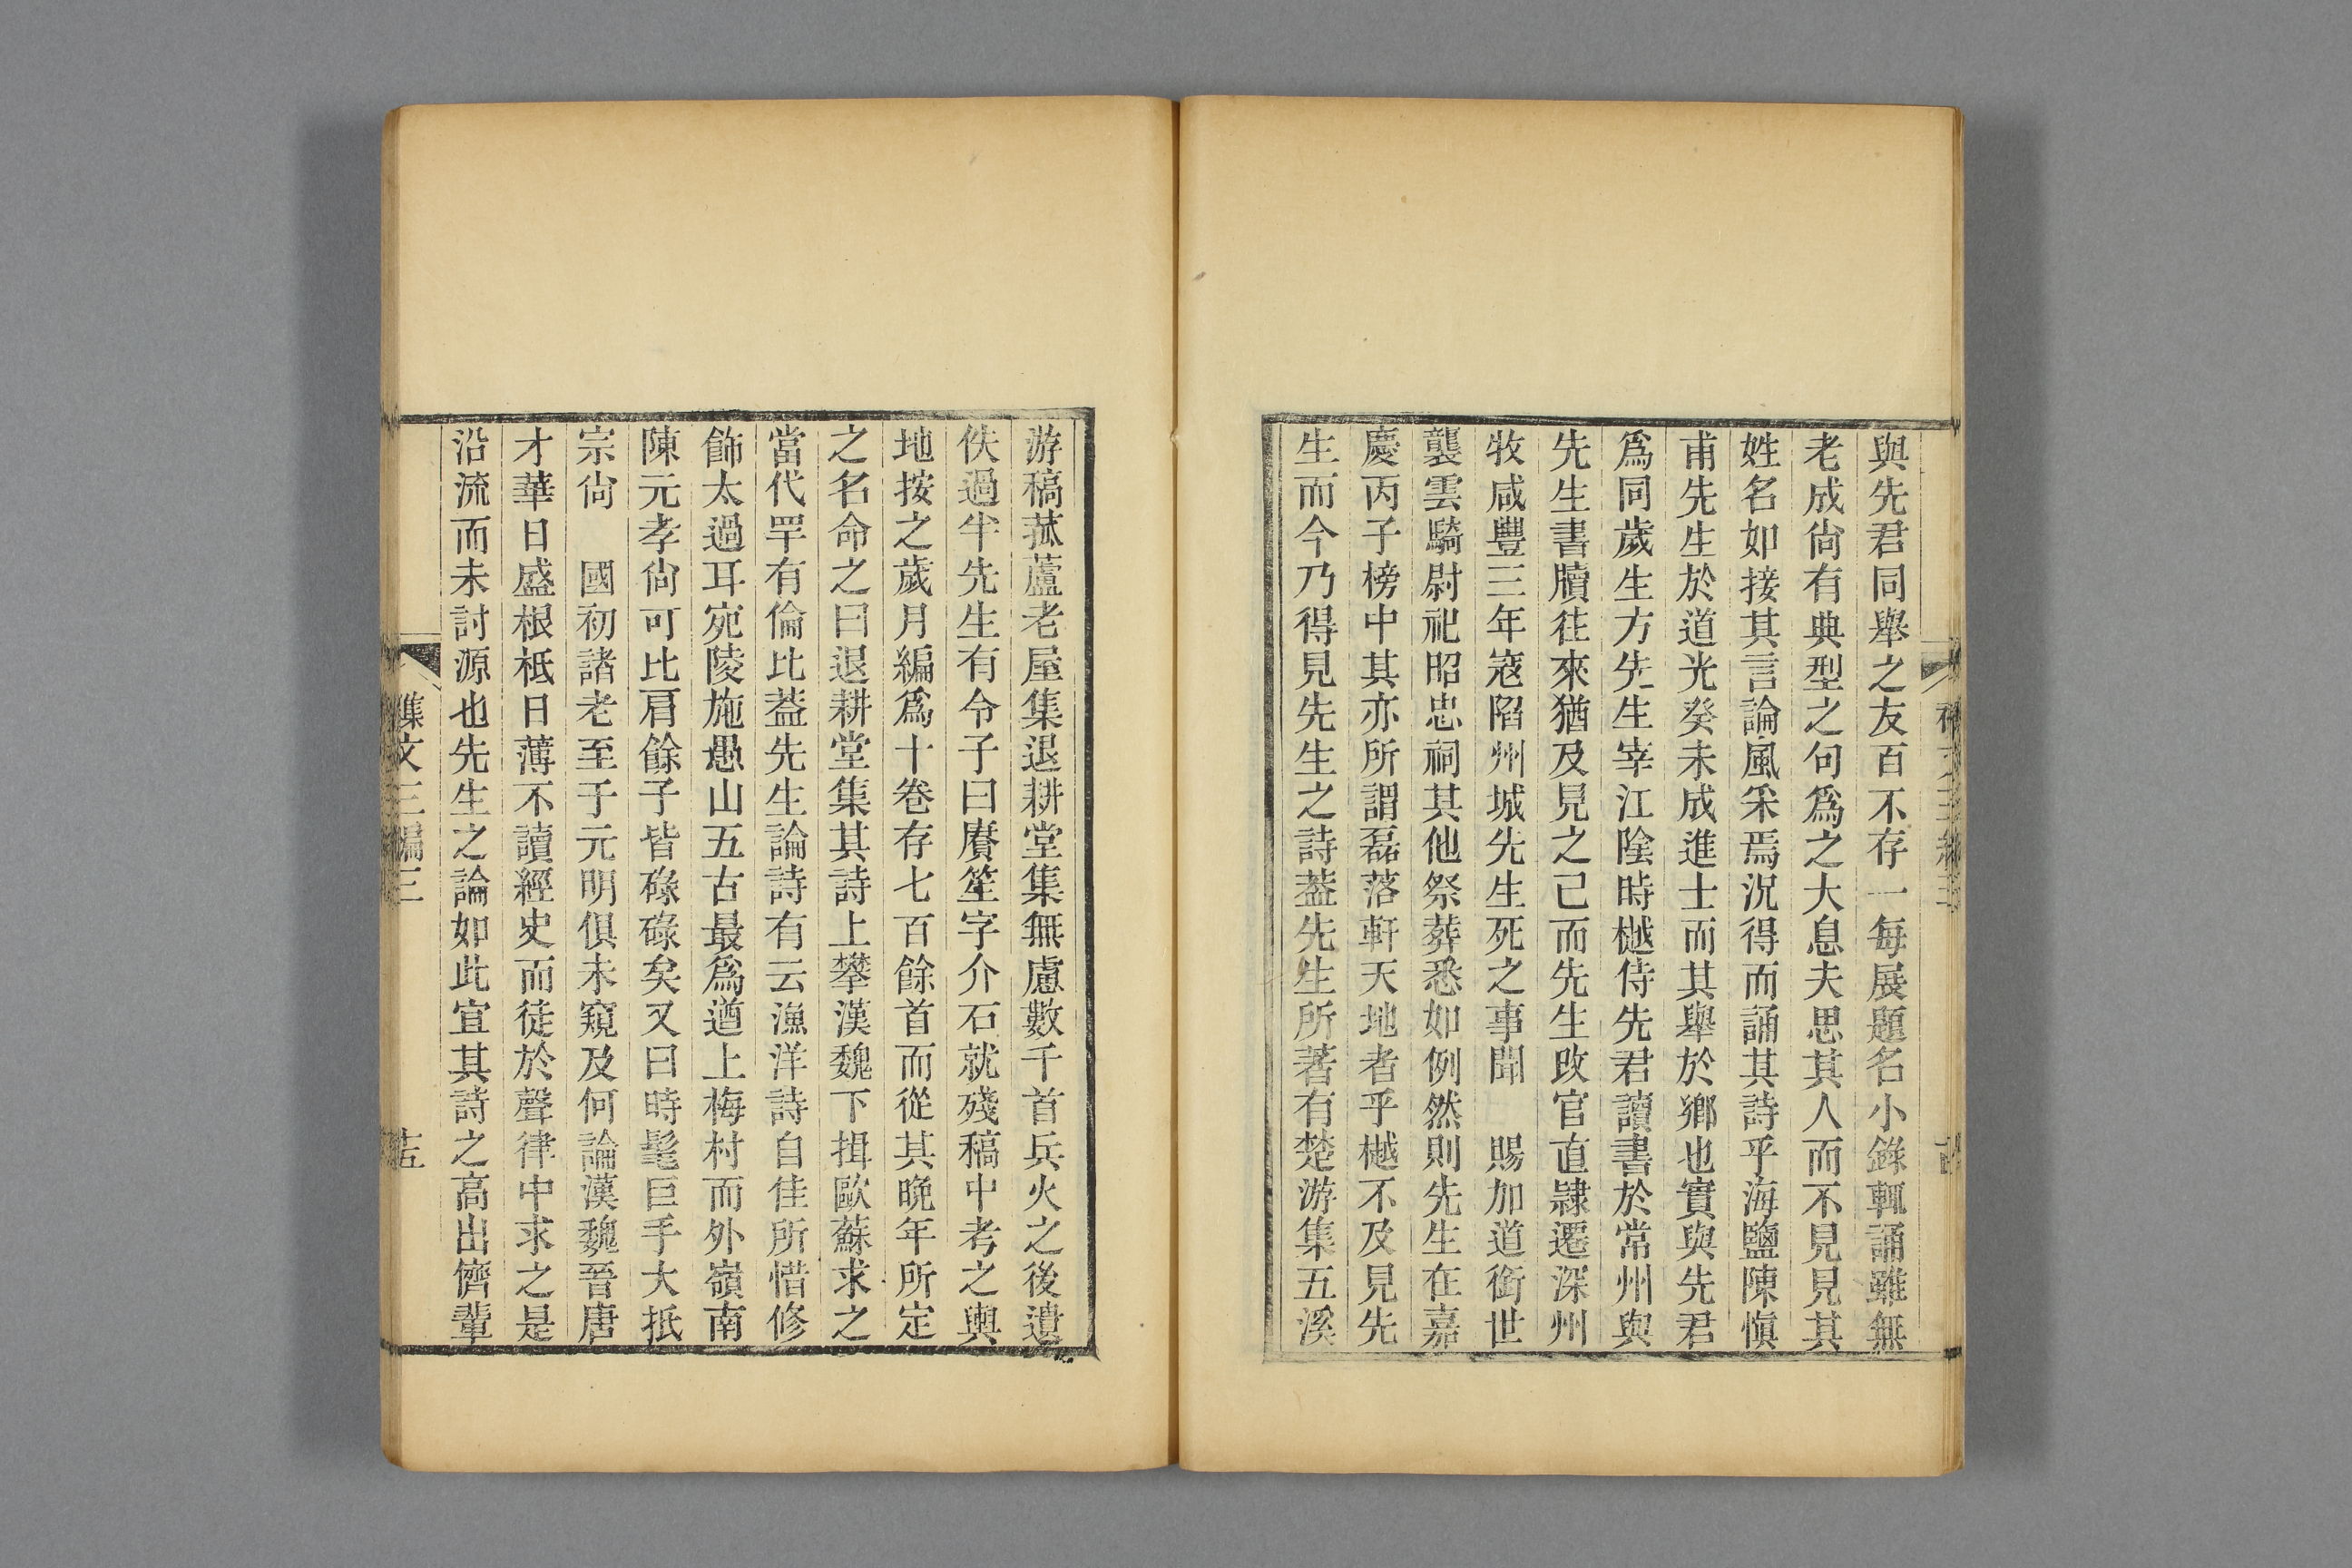 與先君同舉之友百不存一每展題名小錄輒誦雖無
老成尙有典型之句爲之大息夫思其人而不見見其
姓名如接其言論風采焉況得而誦其詩乎海鹽陳愼
甫先生於道光癸未成進士而其舉於鄕也實與先君
爲同歲生方先生宰江陰時樾侍先君讀書於常州與
先生書牘往來猶及見之已而先生改官直隸遷深州
牧咸豐三年寇陷州城先生死之事聞　賜加道銜世
襲雲騎尉祀昭忠祠其他祭葬悉如例然則先生在嘉
慶丙子榜中其亦所謂磊落軒天地者乎樾不及見先
生而今乃得見先生之詩葢先生所著有楚游集五溪
游稿菰蘆老屋集退耕堂集無慮數千首兵火之後遺
佚過半先生有令子曰賡笙字介石就殘稿中考之輿
地按之歲月編爲十卷存七百餘首而從其晚年所定
之名命之曰退耕堂集其詩上攀漢魏下揖歐蘇求之
當代罕有倫比葢先生論詩有云漁洋詩自佳所惜修
飾太過耳宛陵施愚山五古最爲遒上梅村而外嶺南
陳元孝尙可比肩餘子皆碌碌矣又曰時髦巨手大抵
宗尙　國初諸老至于元明俱未窺及何論漢魏晉唐
才華日盛根柢日薄不讀經史而徒於聲律中求之是
沿流而未討源也先生之論如此宜其詩之高出儕輩
襍文三編三
十五